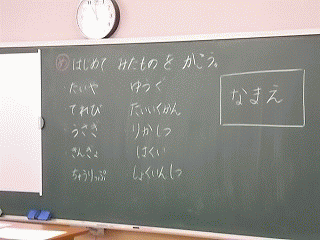 め はじめて みたものを かこう。
たいや ゆうぐ
てれび たいいくかん
うさぎ りかしつ
きんぎょ ほけい
ちゅうりっぷ しょくいんしつ
なまえ